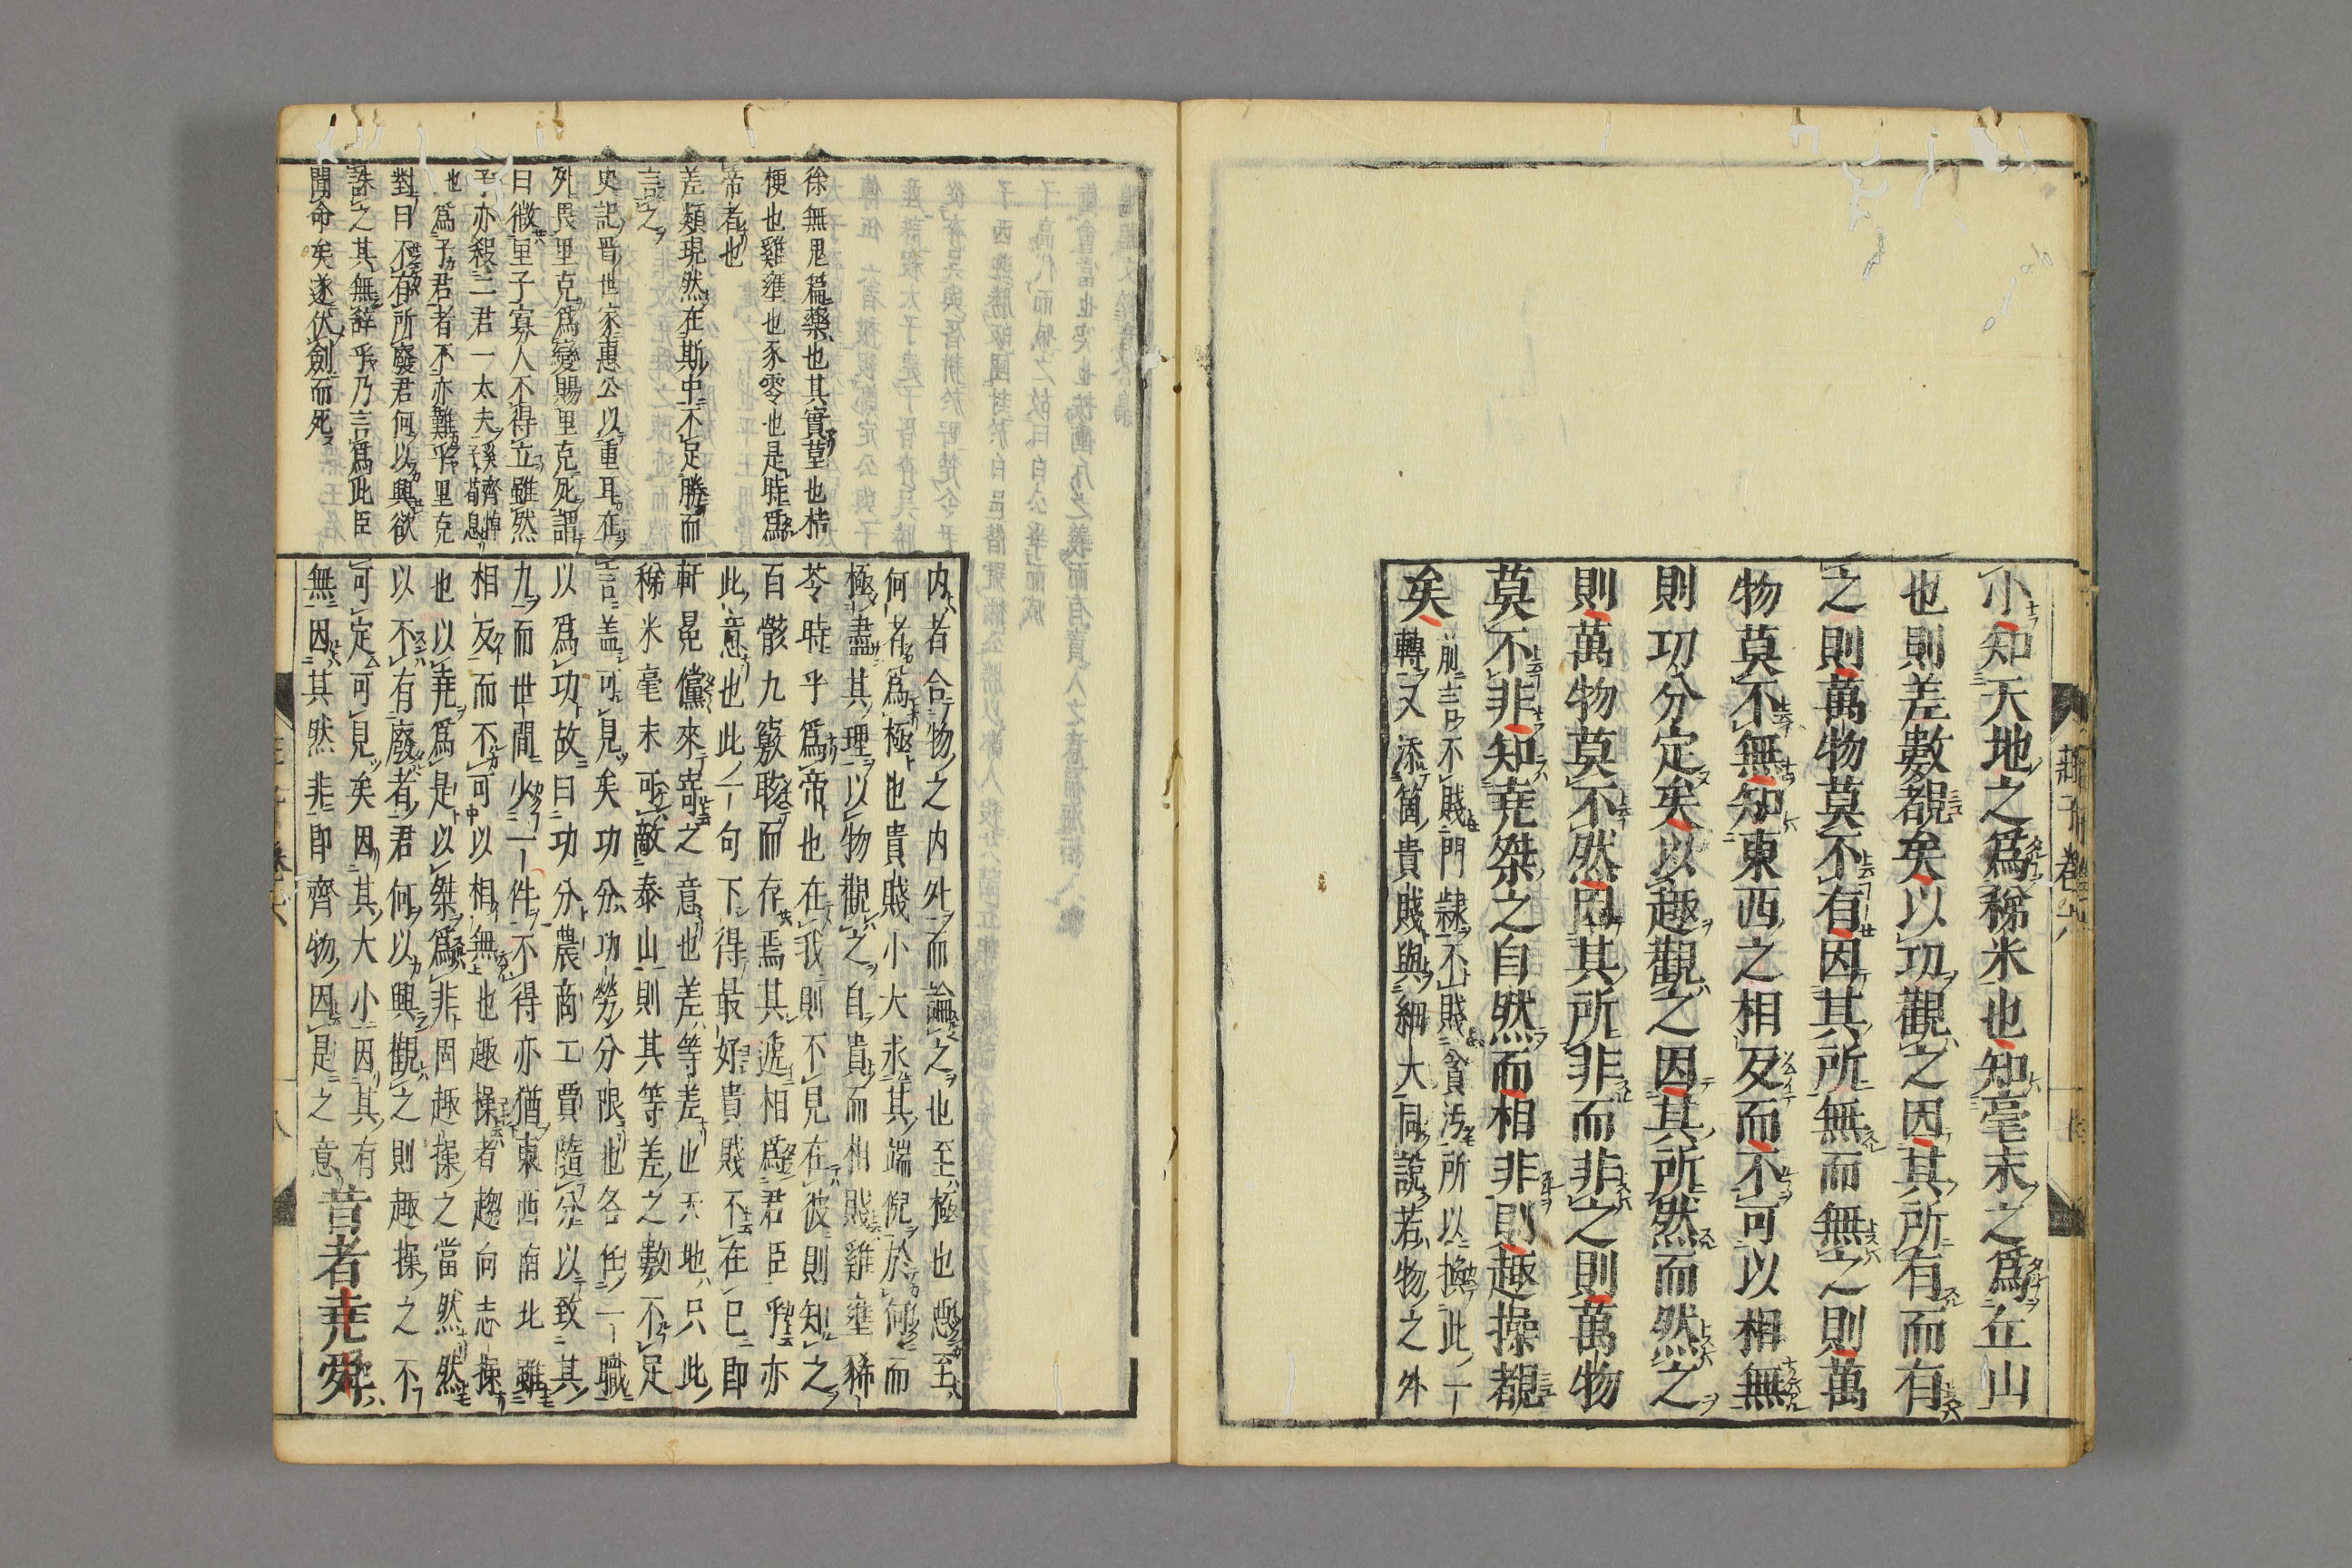 小知天地之爲稊米也知毫末之爲丘山
也則差數覩矣以功觀之因其所有而有
之則萬物莫不有因其所無而無之則萬
物莫不無知東西之相反而不可以相無
則功分定矣以趣觀之因其所然而然之
則萬物莫不然因其所非而非之則萬物
莫不非知堯桀之自然而相非則趣操覩
矣
前言不賤門隷不賤貪汚所以換此一
轉又添箇貴賤與細大同説若物之外
徐無鬼篇藥也其實菫也桔
梗也雞壅也豕零也是時爲
帝者也
差類現然在斯中不足勝而
言之
史記晋世家惠公以重耳在
外畏里克爲變賜里克死謂
曰微里子寡人不得立雖然
子亦殺二君一太夫奚齊悼子荀息
也爲子君者不亦難乎里克
對曰不有所廢君何以興欲
誅之其無辭乎乃言爲此臣
聞命矣遂伏劍而死
内者合物之内外而論之也至極也惡至
何者爲極也貴賤小大求其端倪於何而
極盡其理以物觀之自貴而相賤雞壅豨
苓時乎爲帝也在我則不見在彼則知之
百骸九竅賅而存焉其遞相爲君臣乎亦
此意也此一句下得最好貴賤不在已即
軒冕儻來寄之意也差等差也天地只此
稊米毫末可敵泰山則其等差之數不足
言盖可見矣功分功勞分限也各任一職
以爲功故曰功分農商工賈隨分以致其
九而世間少一件不得亦猶東西南北雖
相反而不可以相無也趣操者趨向志操
也以堯爲是以桀爲非固趣操之當然然
以不有廢者君何以興觀之則趣操之不
可定可見矣因其大小因其有
無因其然非即齊物因是之意昔者堯舜